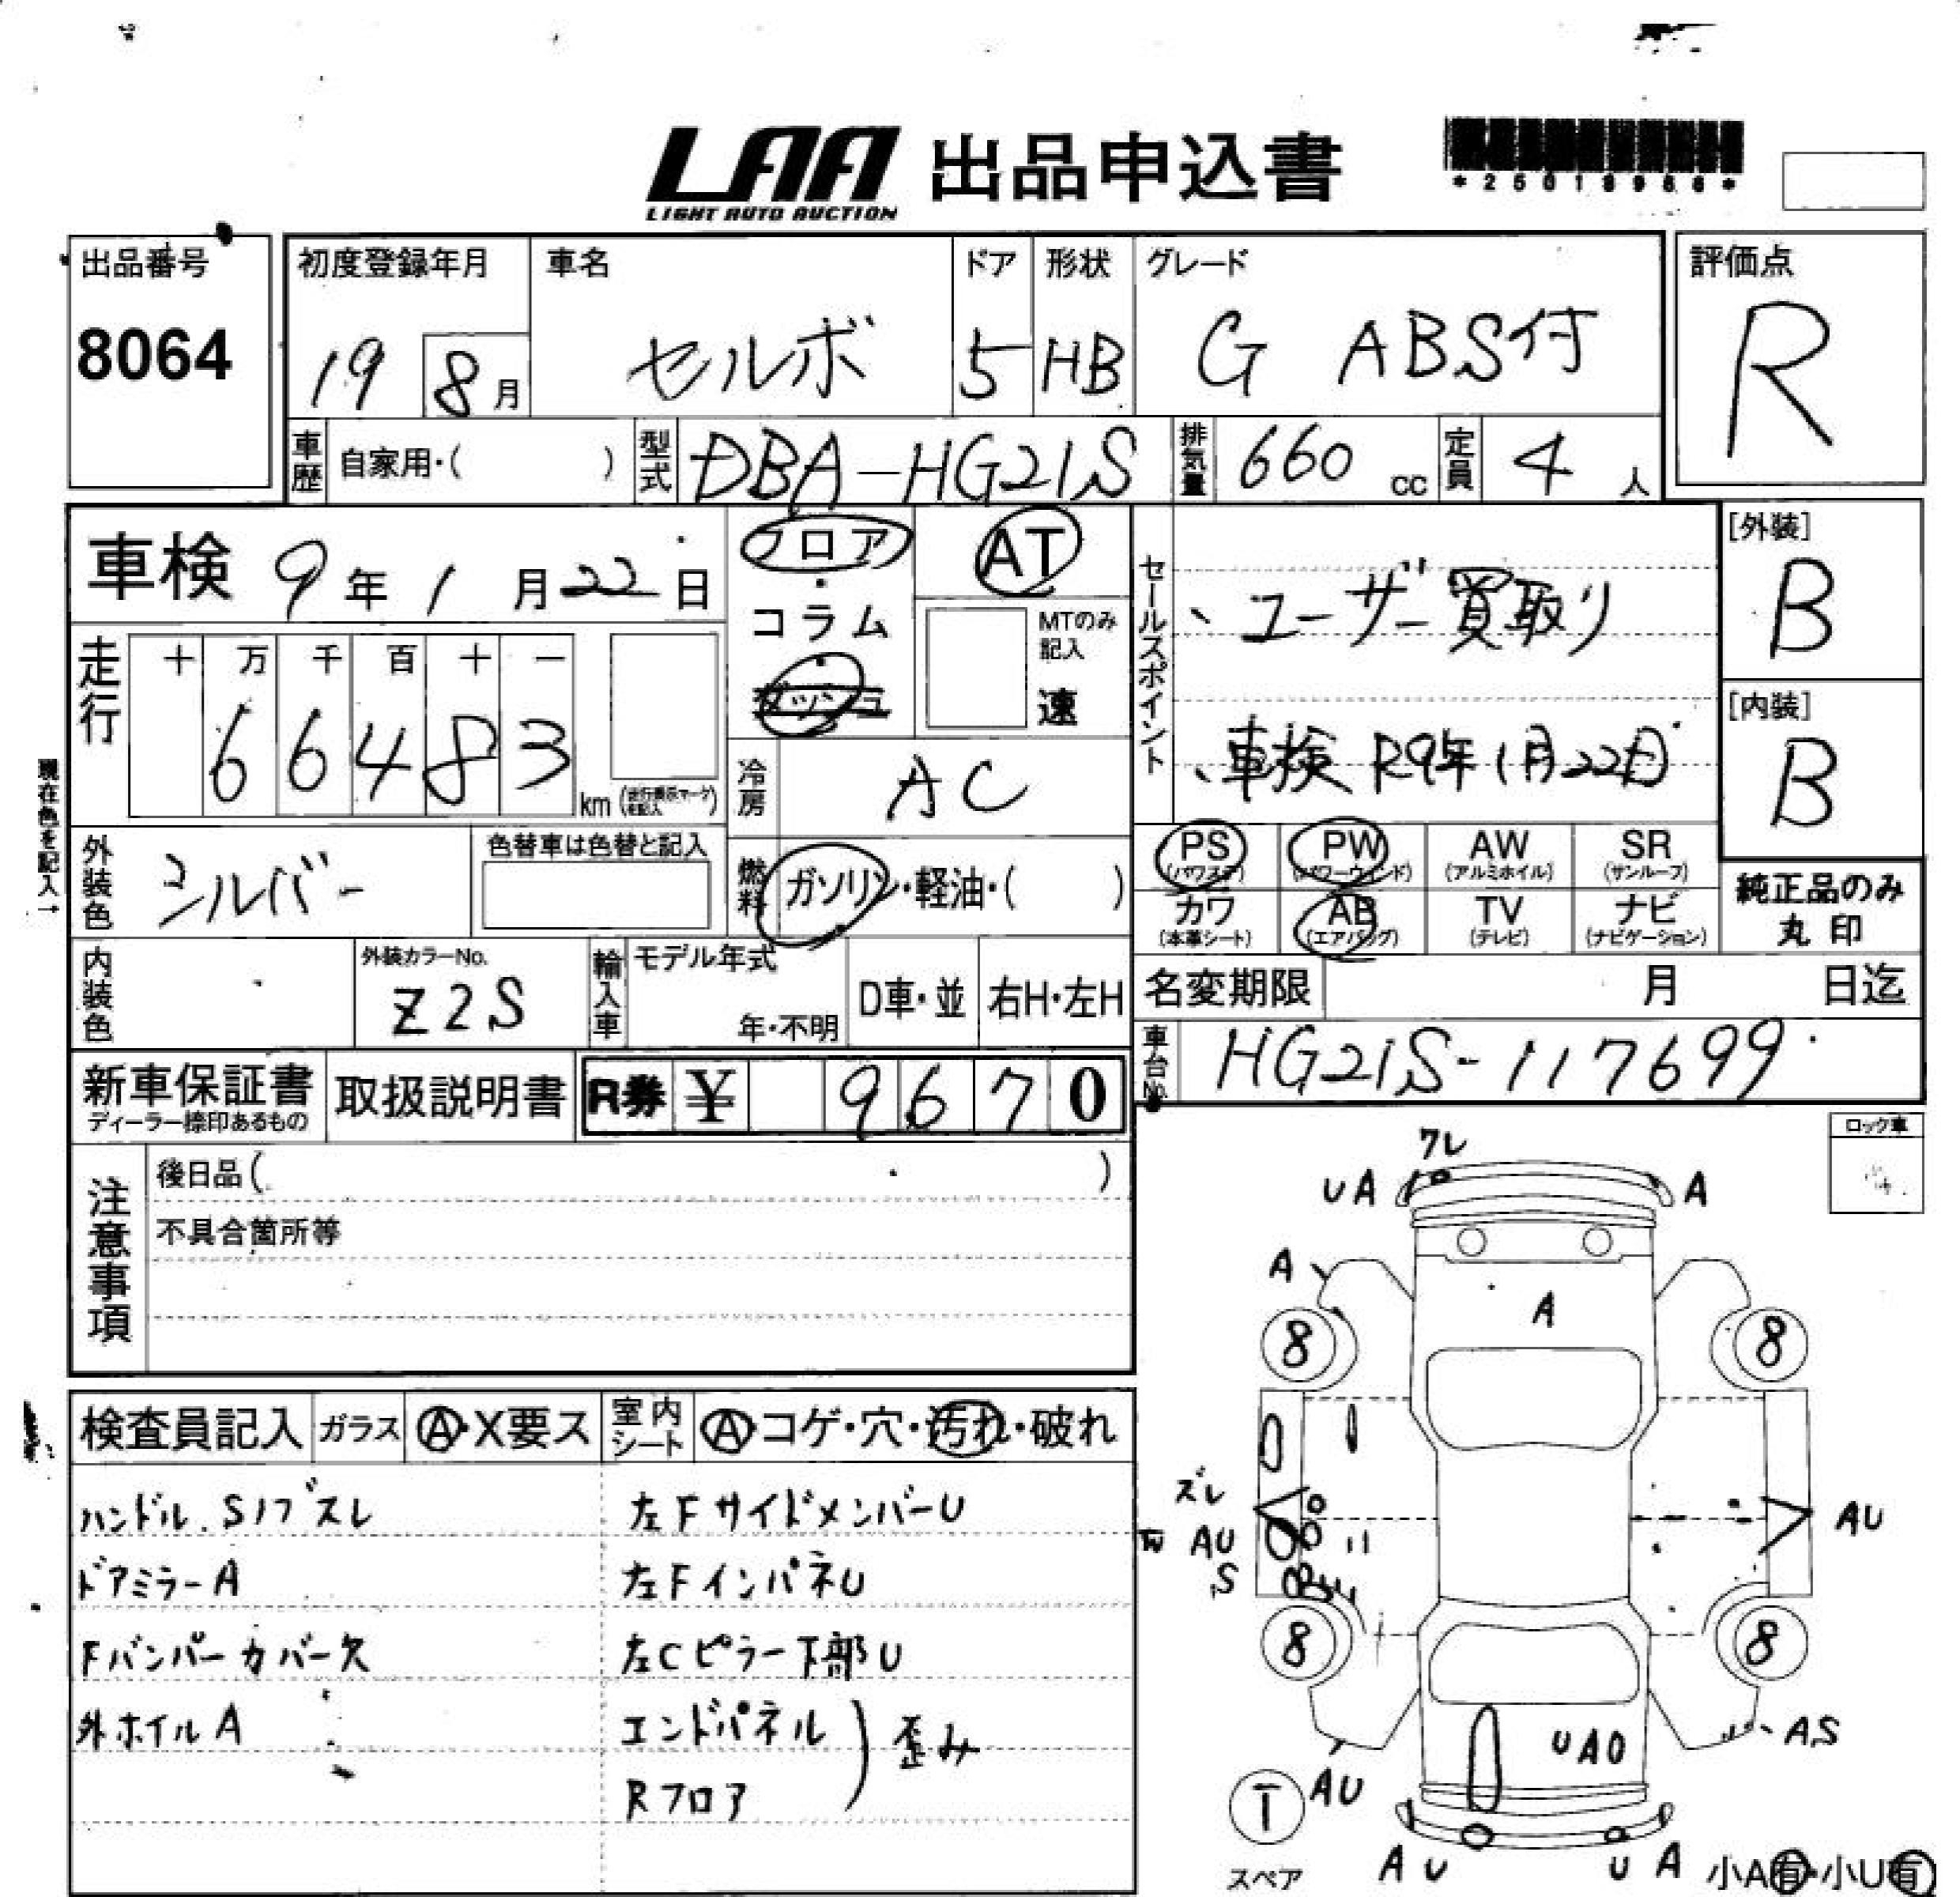 LAA 出品申込書
LIGHT AUTO AUCTION
*25018966*
出品番号
8064
初度登録年月
19 8月
車名
セルボ
ドア
5
形状
HB
グレード
G ABS付
評価点
R
車歴 自家用・( )
型式 DBA-HG21S
排気量 660 cc
定員 4 人
車検 9年1月22日
フロア・コラム・ダッシュ
AT
MTのみ記入
速
セールスポイント
、ユーザー買取り
、車検 R9年1月22日
[外装]
B
[内装]
B
走行 十 万 千 百 十 一
66483 km (走行表示マークを記入)
冷房 AC
現在色を記入→
外装色 シルバー
色替車は色替と記入
燃料 ガソリン・軽油・( )
PS (パワステ)
PW (パワーウィンド)
AW (アルミホイル)
SR (サンルーフ)
カワ (本革シート)
AB (エアバッグ)
TV (テレビ)
ナビ (ナビゲーション)
純正品のみ
丸印
内装色
外装カラーNo.
Z2S
輸入車 モデル年式
年・不明
D車・並
右H・左H
名変期限 月 日迄
車台No. HG21S-117699
新車保証書
ディーラー捺印あるもの
取扱説明書
R券 ¥ 9670
注意事項
後日品( )
不具合箇所等
ロック車
検査員記入
ガラス Ⓐ・X要ス
室内シート Ⓐ・コゲ・穴・汚れ・破れ
ハンドル.Sノブスレ
ドアミラーA
Fバンパーカバー欠
外ホイルA
左FサイドメンバーU
左FインパネU
左Cピラー下部U
エンドパネル
Rフロア
歪み
ワレ
UA A
A
A
8 8
ズレ
AU
S
AU
8 8
AS
UAO
AU
T
スペア
A U
U A
小A有・小U有